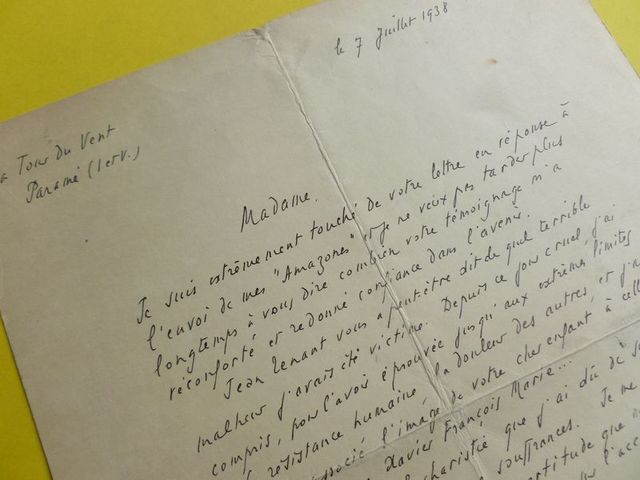 le 7 Juillet 1938
a Tour du Vent
Paramé (I et V.)
Madame.
Je suis extrêmement touché de votre lettre en réponse à
l'envoi de mes "Amazones" et je ne veux pas tarder plus
longtemps à vous dire combien votre témoignage m'a
réconforté et redonné confiance dans l'avenir.
Jean Renant vous a peut-être dit de quel terrible
malheur j'avais été victime. Depuis ce jour cruel, j'ai
compris, pour l'avoir éprouvée jusqu'aux extrêmes limites
résistance humaine, la douleur des autres, et j'
associé l'image de votre cher enfant à cell
Xavier François Marie...
charistie que j'ai dû de
souffrances. Je me
ertitude que
l'acc